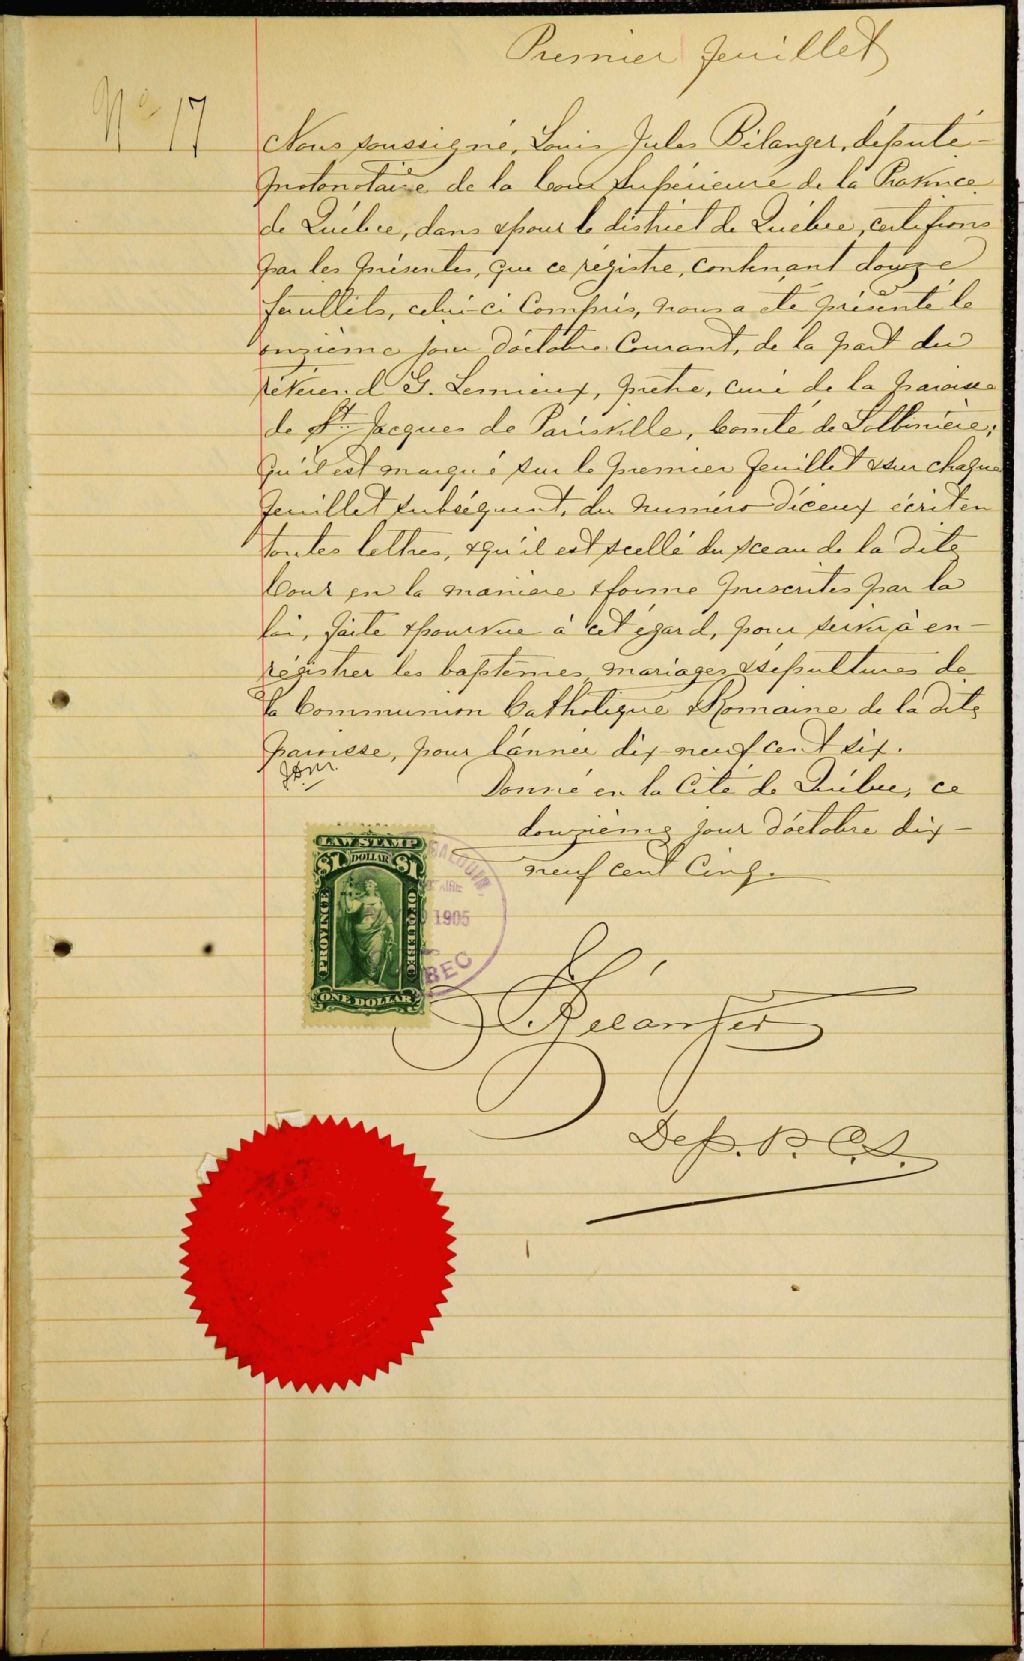 Premier feuillet
No 17
Nous soussigné, Louis Jules Bélanger, député-
protonotaire de la Cour Supérieure de la Province
de Québec, dans & pour le district de Québec, certifions
par les présentes, que ce régistre, contenant douze
feuillets, celui-ci compris, nous a été présenté le
onzième jour d'octobre courant, de la part du
révérend G. Lemieux, prêtre, curé de la paroisse
de St. Jacques de Parisville, Comté de Lotbinière;
qu'il est marqué sur le premier feuillet & sur chaque
feuillet subséquent, du numéro d'iceux écrit en
toutes lettres, & qu'il est scellé du sceau de la dite
Cour en la manière & forme prescrites par la
loi, faite & pourvue à cet égard, pour servir à en-
régistrer les baptêmes, mariages & sépultures de
la Communion Catholique & Romaine de la dite
paroisse, pour l'année dix-neuf cent six.
Donné en la Cité de Québec, ce
douzième jour d'octobre dix-
neuf cent cinq.
LAW STAMP
$1 DOLLAR $1
PROVINCE OF QUEBEC
ONE DOLLAR
1905
Bélanger
Dep. P. C. S.